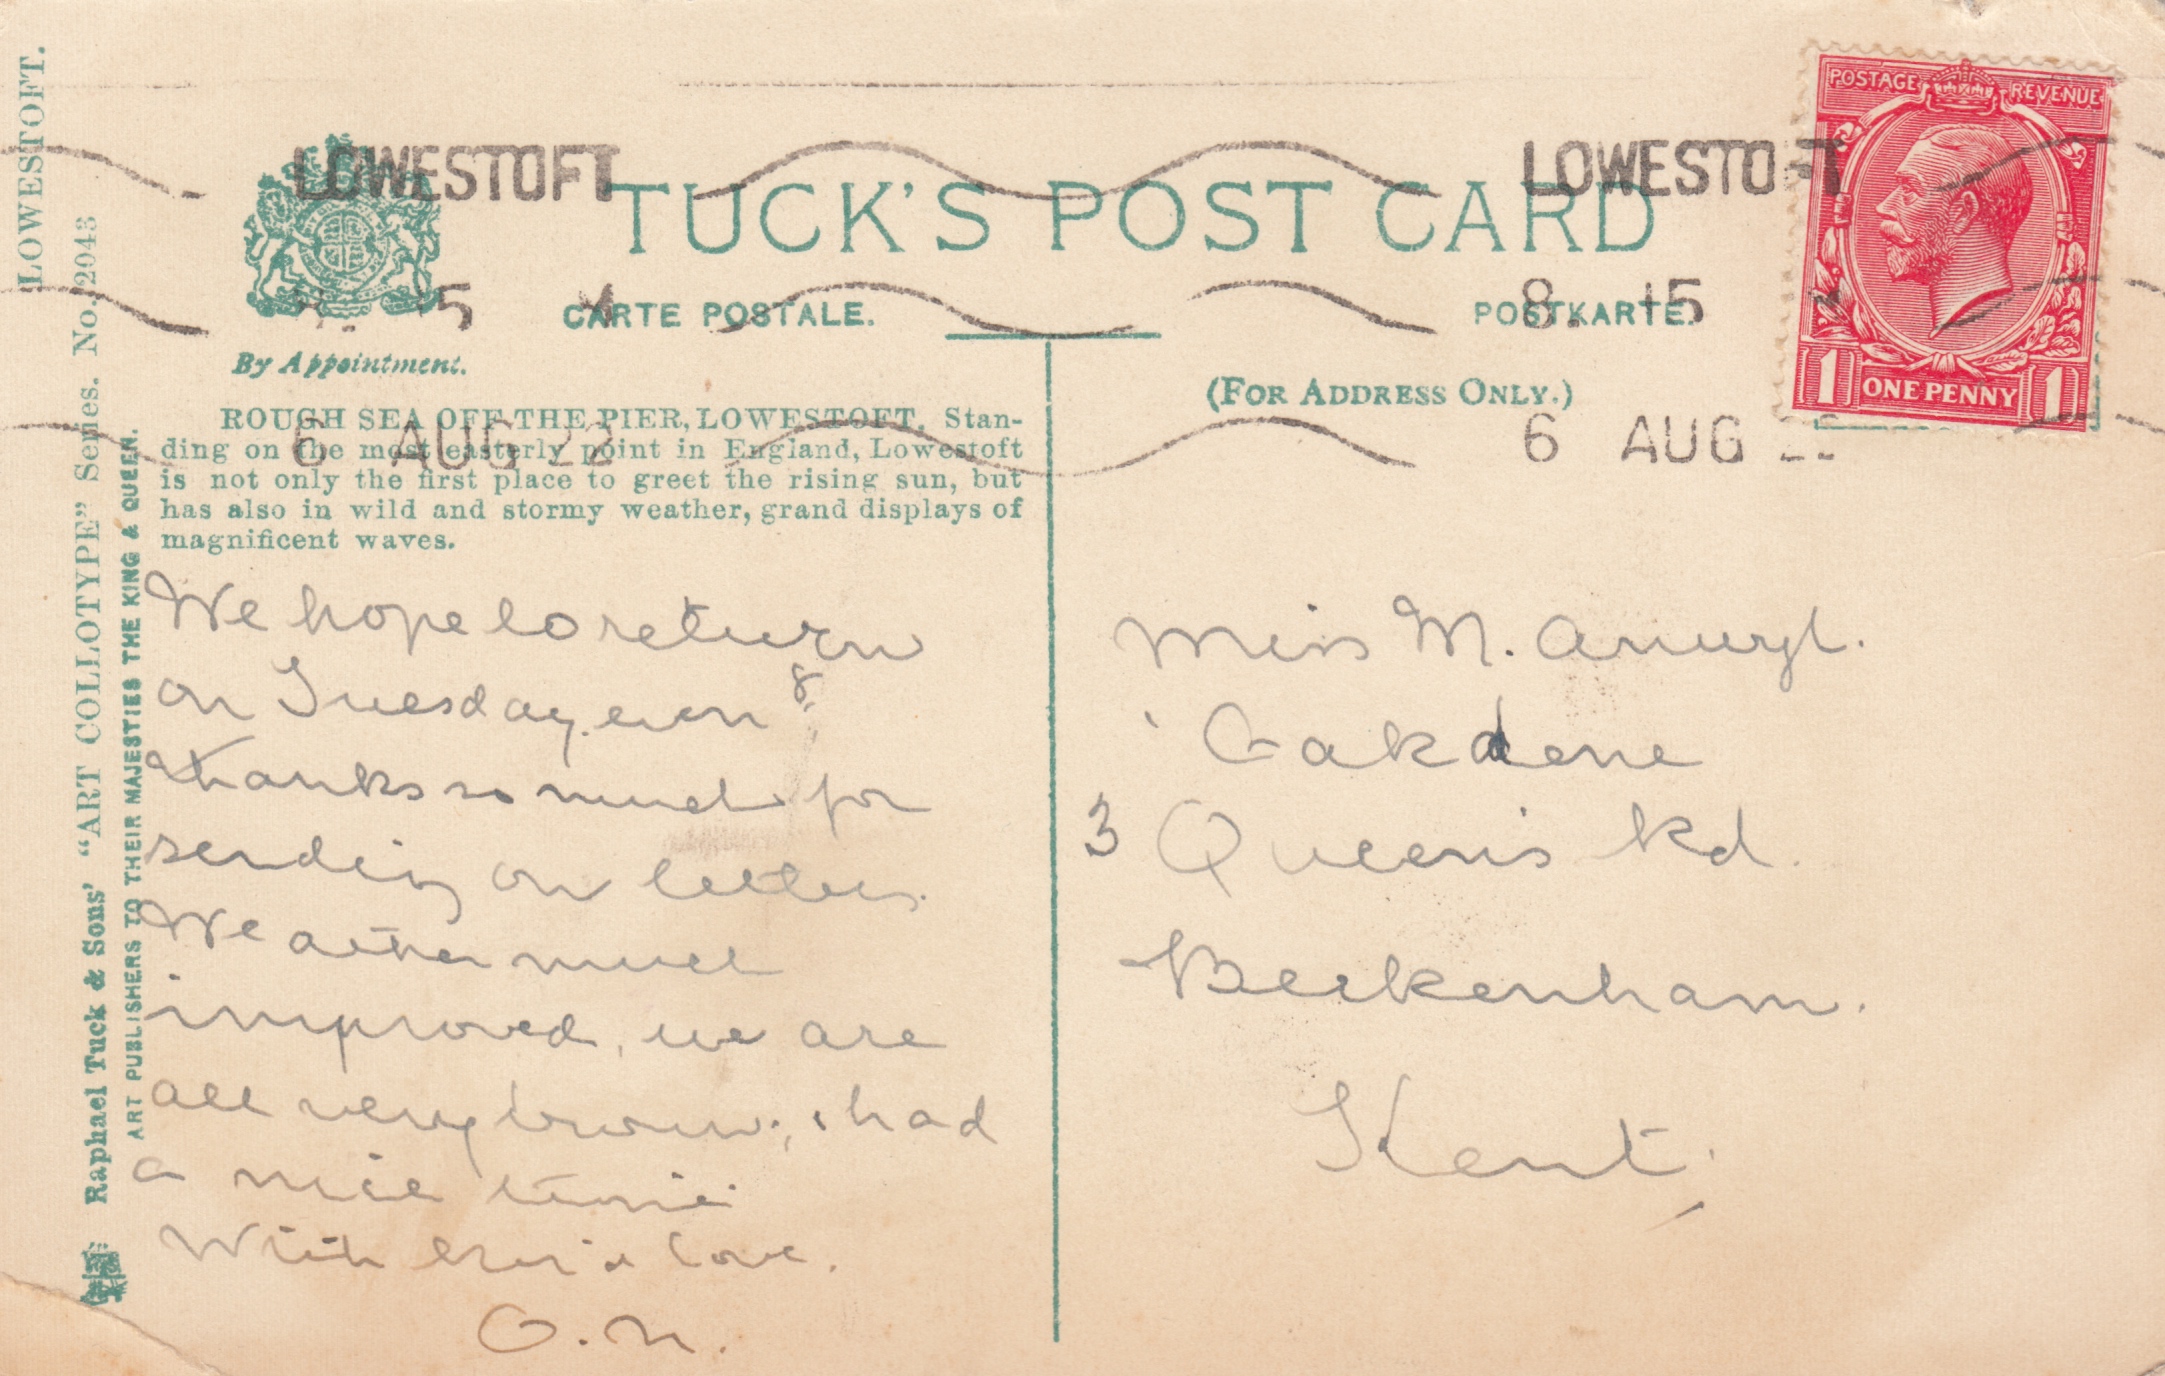 LOWESTOFT.
"ART COLLOTYPE" Series. No. 2043
Raphael Tuck & Sons'
ART PUBLISHERS TO THEIR MAJESTIES THE KING & QUEEN.
LOWESTOFT
5
6 AUG 22
LOWESTOFT
8. 15
6 AUG
TUCK'S POST CARD
CARTE POSTALE.
POSTKARTE.
By Appointment.
(FOR ADDRESS ONLY.)
POSTAGE REVENUE
1 ONE PENNY 1
ROUGH SEA OFF THE PIER, LOWESTOFT. Stan-
ding on the most easterly point in England, Lowestoft
is not only the first place to greet the rising sun, but
has also in wild and stormy weather, grand displays of
magnificent waves.
We hope to return
on Tuesday even g.
thanks so much for
sending on letters.
We ather much
improved, we are
all very brown, had
a nice time
With love.
O. M.
Miss M.
Oakdene
3 Queen's Rd.
Beckenham.
Kent,